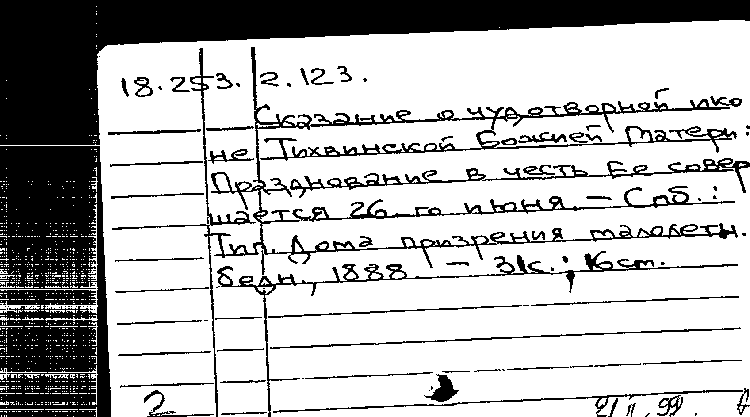 18.253.2.123.
Сказание о чудотворной ико
не Тихвинской Божией Матери:
Празднование в честь Ее совер
шается 26-го июня. – Спб.:
Тип. Дома призрения малолетн.
бедн., 1888. – 31с.; 16см.
2